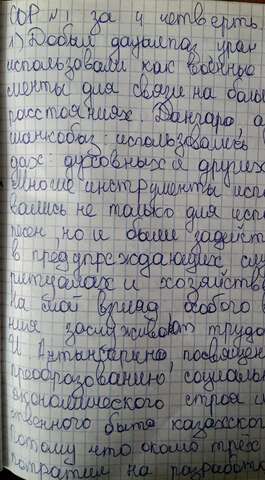 СОР №1 за 4 четверть.
1) Добыл дауылпаз, уран
использовали как военные
менты для связи на боль
расстояниях. Дангара, а
шанкобаз использовались
дах: духовных и других
Многие инструменты испо
вались не только для исп
песен, но и были задейст
в предупреждающих слу
ритуалах и хозяйстве
На мой взгляд особого
ния заслуживают трудо
И. Алтынсарина посвящен
преобразованию социаль
экономического строя и
ственного быта казахског
потому что около трёх
потратил на разработк